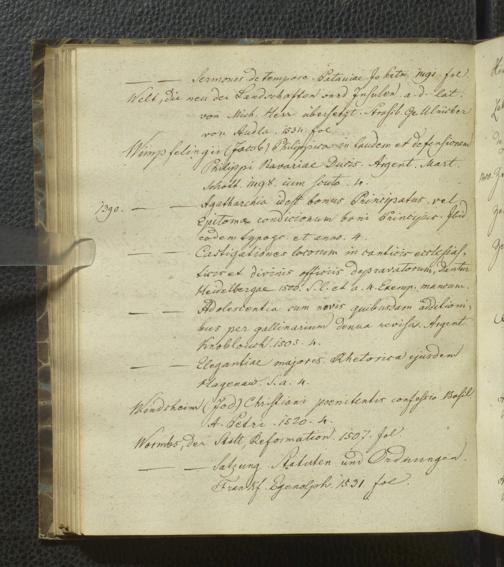 — — Sermones de tempore. Pataviae Jo. Petri. 1491. fol.
Welt, die neu der Landschaften und Insulen a. d. lat.
von Mich. Herr übersetzt. Strasb. Ge. Ulricher
von Andla. 1534. fol.
Wimpfelingii (Jacob) Philippica in laudem et defensionem
Philippi Bavariae Ducis. Argent. Mart.
Schott. 1498. cum scuto. 4.
7390. — — Agatharchia id est bonus Principatus, vel
Epitoma condiciorum boni Principis. Ibid
eodem typogr. et anno. 4.
— — Castigationes locorum in canticis ecclesias-
ticis et divinis officiis depravatorum, dentur
Heidelbergae 1500. S. l. et a. 4. Exemp. mancum.
— — Adolescentia cum novis quibusdam additioni-
bus per gallinarium denuo revisa. Argent
Knoblouch. 1505. 4.
— — Elegantiae majores. Rhetorica ejusdem
Hagenaw. S. a. 4.
Windsheim (Jod) Christiani poenitentis confessio Basil
A. Petri. 1520. 4.
Wormbs, der Statt, Reformation. 1507. fol
— — Satzung Statuten und Ordnungen.
Francf. Egenolph. 1531 fol.